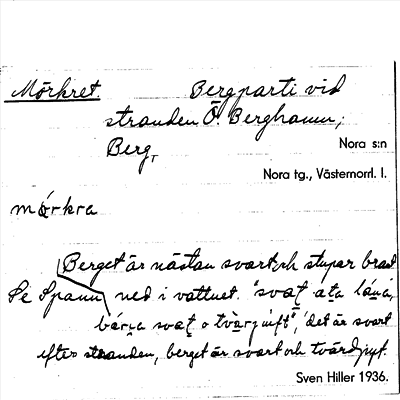 Mörkret. Bergparti vid
stranden Ö. Berghamn,
Berg,
Nora s:n
Nora tg., Västernorrl. l.
mórkra
Berget är nästan svart och stupar brant
Se Spann ned i vattnet. "svaṭ
o tvärjúift", det är svart
efter stranden, berget är svart och tvärdjupt.
Sven Hiller 1936.